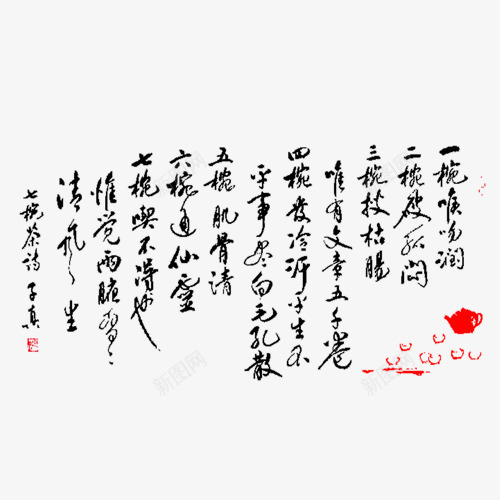 一椀喉吻潤
二椀破孤悶
三椀搜枯腸
唯有文章五千卷
四椀发轻汗平生不
平事尽向毛孔散
五椀肌骨清
六椀通仙靈
七椀喫不得也
惟觉兩腋習々
清風々生
七椀茶诗 子真
新图网